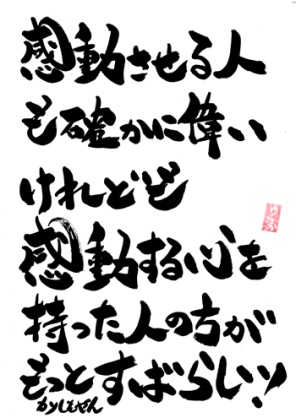 感動させる人
も確かに偉い
けれども
感動する心を
持った人の方が
もっとすばらしい!
かりしもぜん